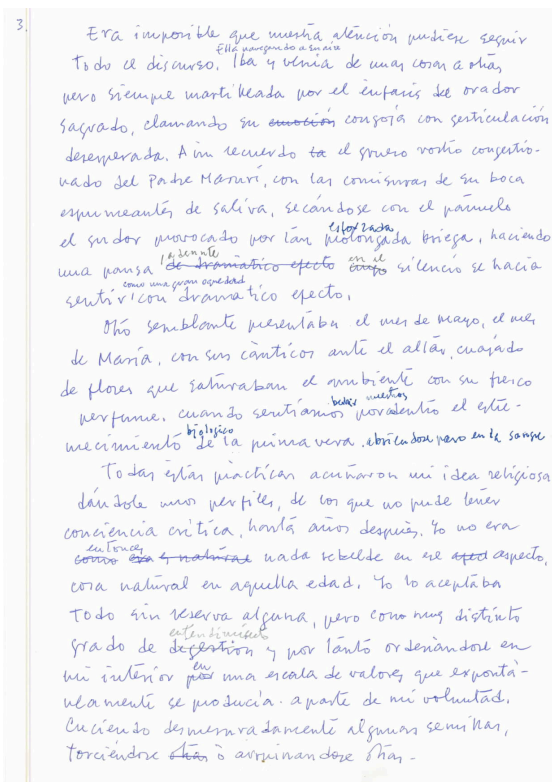 3.
Era imposible que nuestra atención pudiese seguir
Ella navegando a su aire
todo el discurso. Iba y venía de unas cosas a otras
pero siempre martilleada por el énfasis del orador
sagrado, clamando su emoción congoja con gesticulación
desesperada. Aún recuerdo la el grueso rostro congestio-
nado del Padre Maruri, con las comisuras de su boca
espumeantes de saliva, secándose con el pañuelo
esforzada
el sudor provocado por tan prolongada briega, haciendo
en el
una pausa de dramático efecto cuyo silencio se hacía
como una gran oquedad
sentir con dramático efecto.
Otro semblante presentaba el mes de mayo, el mes
de María, con sus cánticos ante el altar, cuajado
de flores que saturaban el ambiente con su fresco
perfume. cuando sentíamos por dentro el estre-
biológico
mecimiento de la primavera. abriéndose paso en la sangre
Todas estas prácticas acuñaron mi idea religiosa
dándole unos perfiles, de los que no pude tener
conciencia crítica, hasta años después. Yo no era
entonces
como era y natural nada rebelde en ese aspecto,
cosa natural en aquella edad. Yo lo aceptaba
todo sin reserva alguna, pero con muy distinto
entendimiento
grado de digestión y por tanto ordenándose en
en
mi interior por una escala de valores que expontá-
neamente se producía. aparte de mi voluntad.
Creciendo desmesuradamente algunas semillas,
torciéndose otras ó arruinandose otras.-